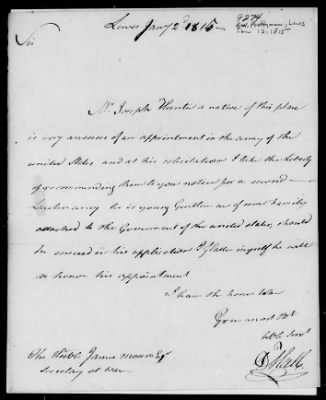 Lewes Jany 2d 1815
9274
Lewes
Jan 12, 1815
Sir
Mr Joseph Hunter a native of this place
is very anxious of an appointment in the army of the
united States and at his solicitation I take the liberty
of recommending him to your notice for a second
Lieutenancy he is young Gentleman of warm family
attached to the Government of the united states, should
he succeed in his application I flatter myself he will
do honor his appointment
I have the honor to be
Your most Obt
Hble Servt
D Hall
The Honble James Monroe Esqr
Secretary at War